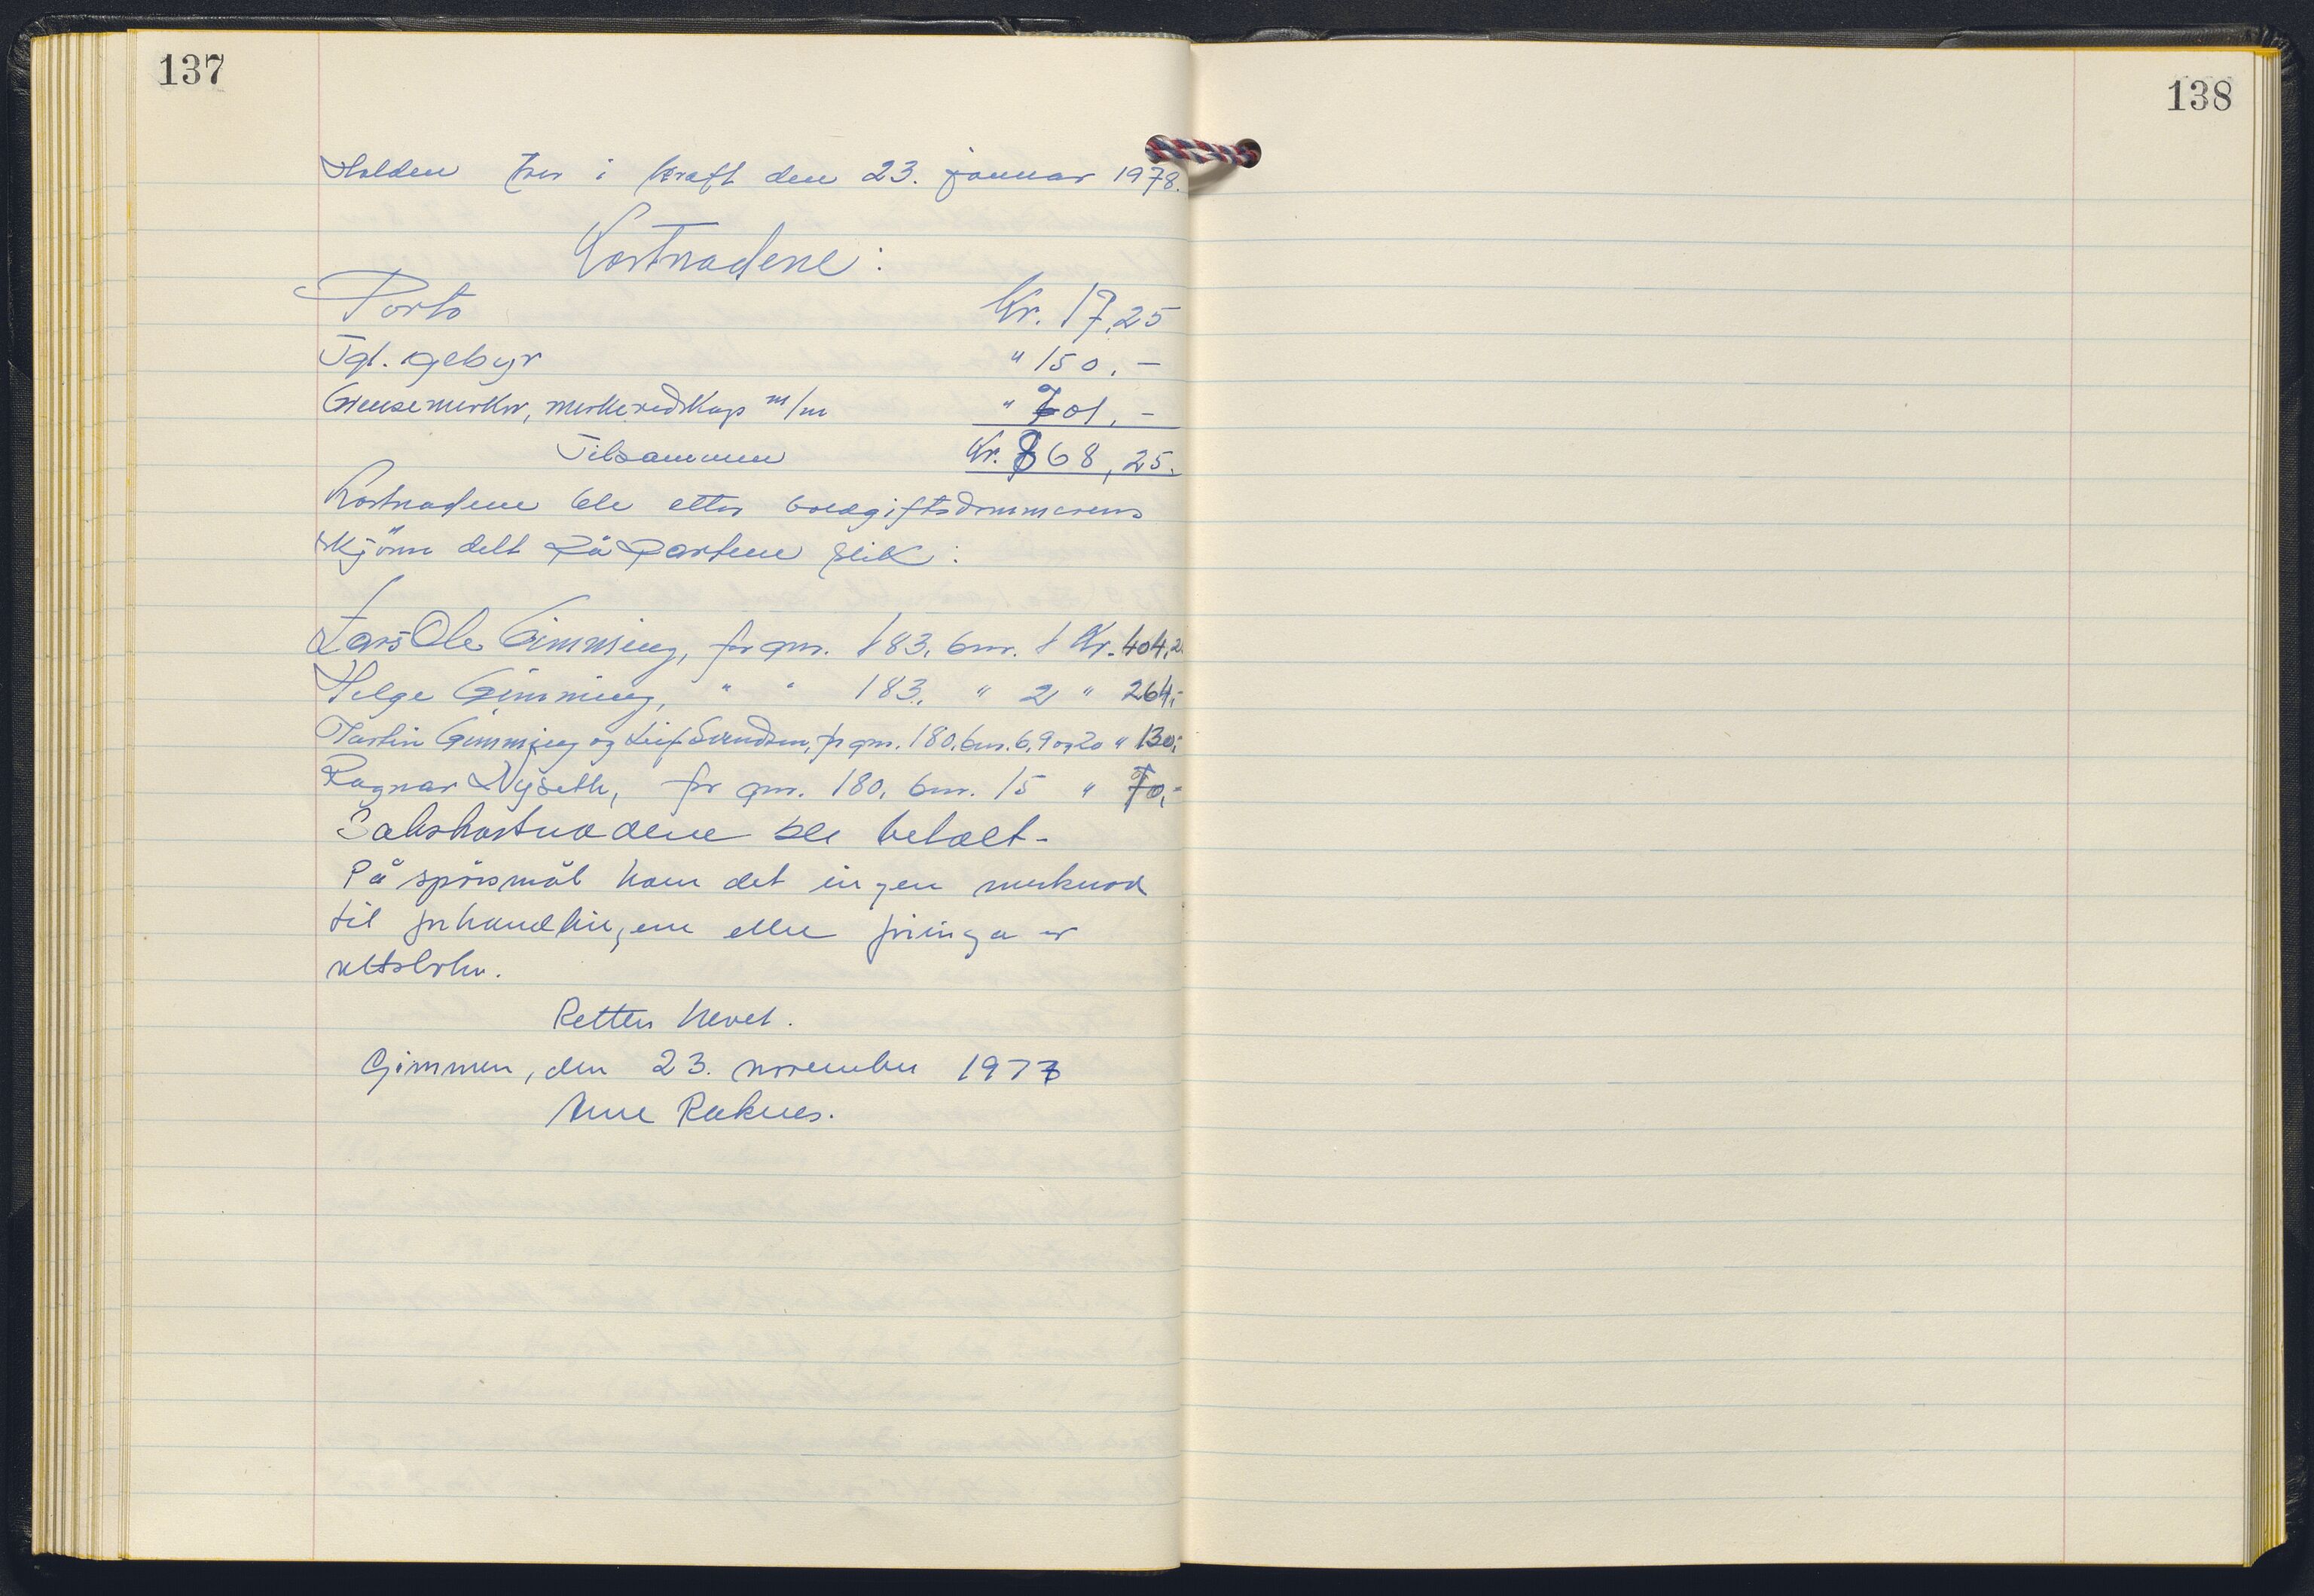 137
138
Holden trer i kraft den 23. januar 1978.
Kostnadene:
Porto Kr. 17,25
Tgl. gebyr " 150.-
Grensemerker, merkeredskap m/m " 701,-
Tilsammen Kr. 868,25.
Kostnadene ble etter voldgiftsdommerens
skjönn delt på partene slik:
Lars Ole Gimming, for gnr. 183, bnr. 1 Kr. 404,2
Helge Gimming, " " 183, " 2 " 264,-
Martin Gimming og Leif Svendsen, fr gnr. 180, bnr. 6,9 og 20 " 130,-
Ragnar Nyseth, for gnr. 180, bnr. 15 " 70,-
Sakskostnadene ble betalt.
På spörsmål kom det ingen merknad
til forhandlingene eller föringa av
rettsboka.
Retten hevet.
Gimmen, den 23. november 1977
Raknes.